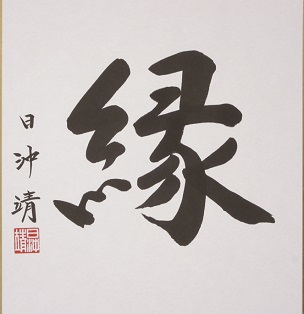 縁
日沖靖